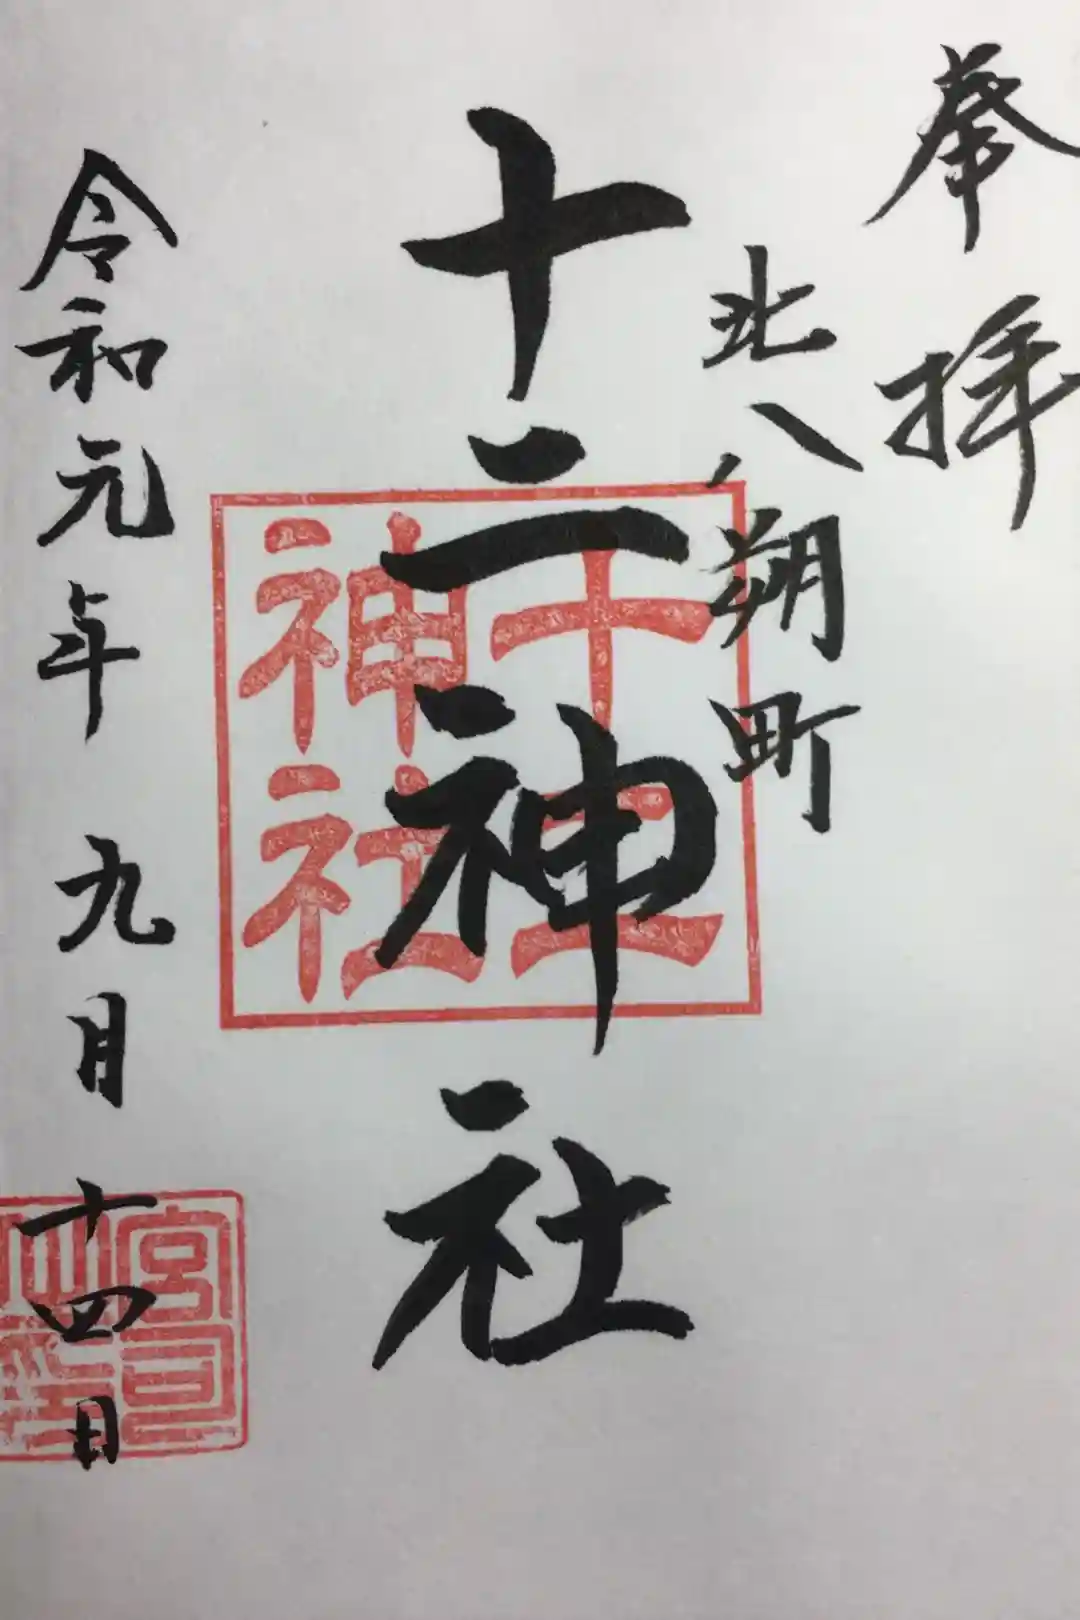 奉拝
北八朔町
十二神社
十二
神社
令和元年九月十四日
宮司
之印